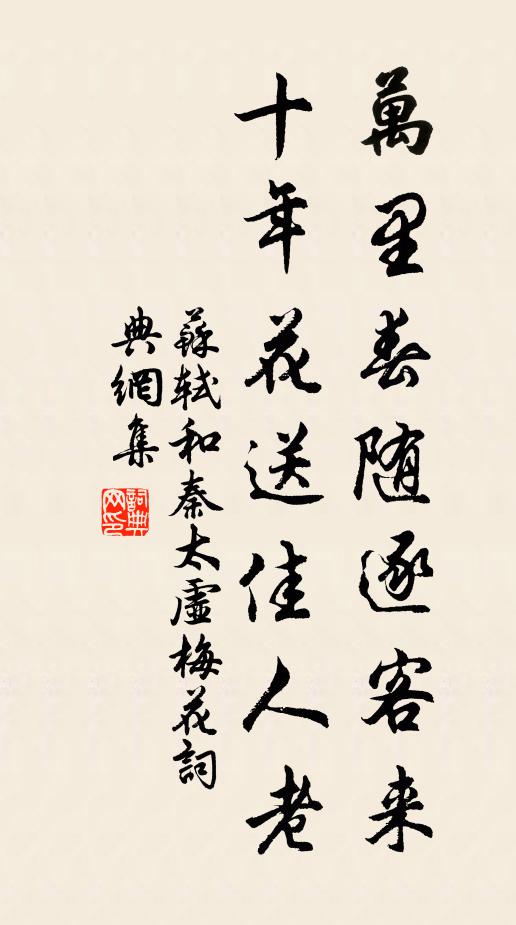 萬里春随逐客来
十年花送佳人老
蘇軾和秦太虛梅花詞
典網集
詞典
网印